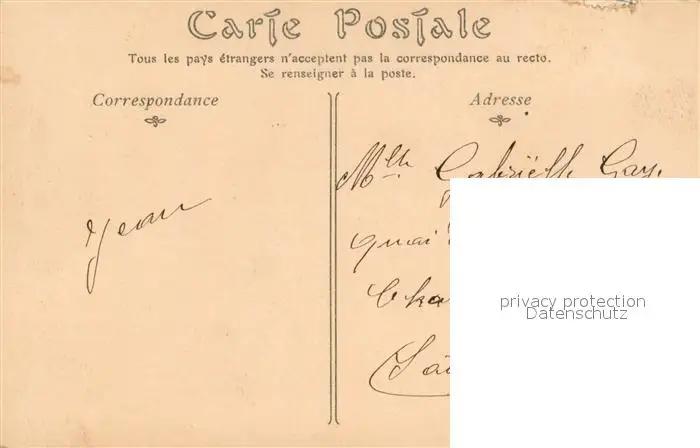 Carte Postale
Tous les pays étrangers n'acceptent pas la correspondance au recto.
Se renseigner à la poste.
Correspondance
Adresse
Mlle Gabrielle Gay
Jean
quai
Cha
privacy protection
Datenschutz